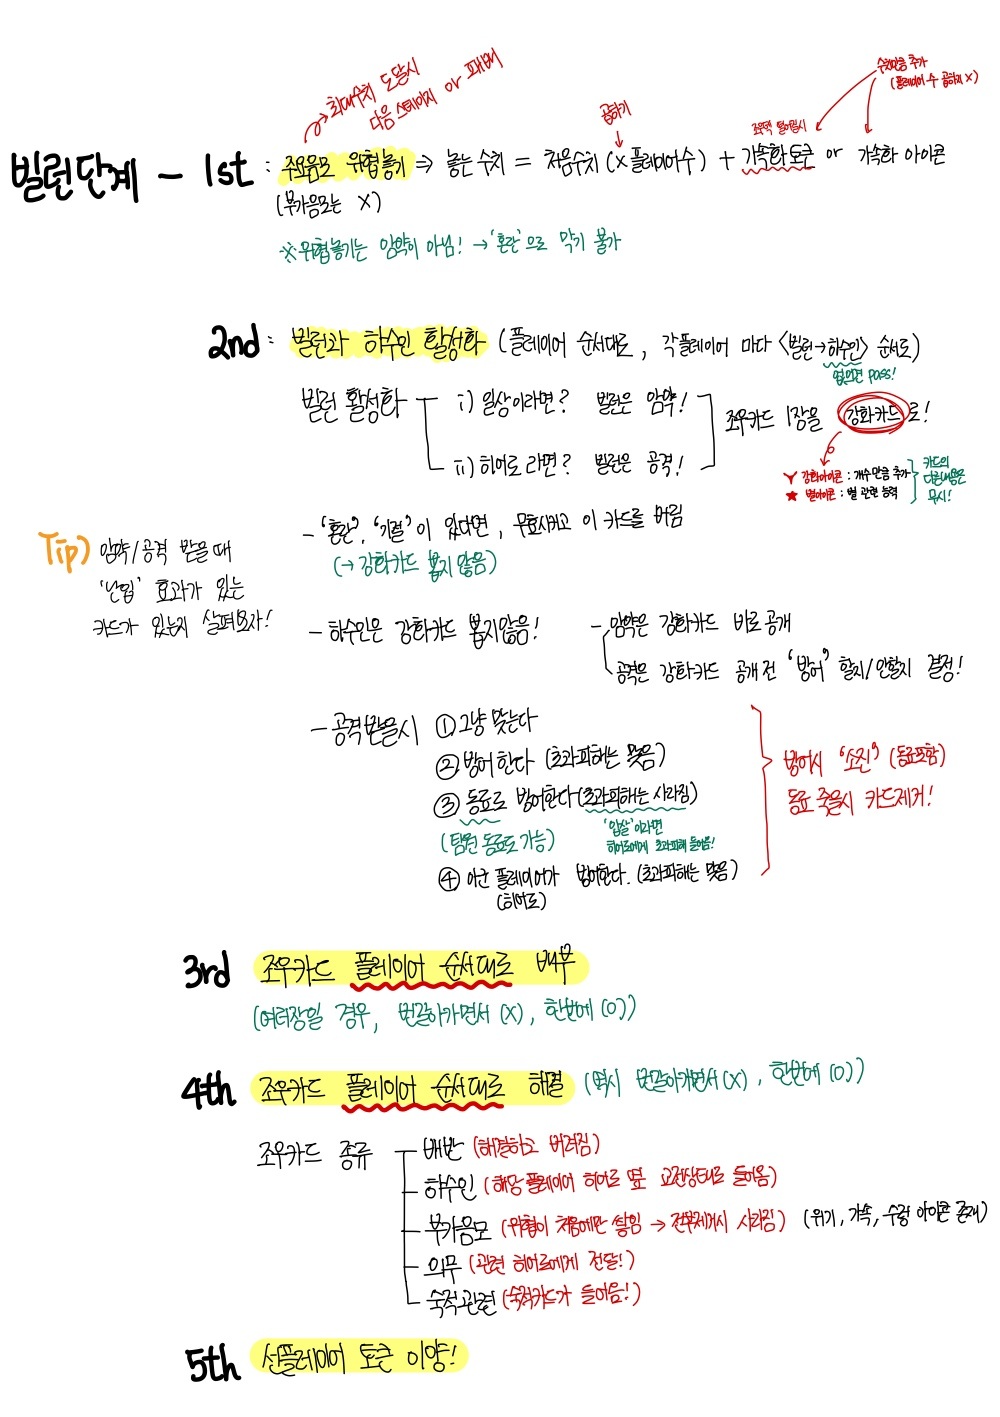 최대수치 도달시
다음 스테이지 or 패배
곱하기
조우덱 떨어질시
수치만큼 추가
(플레이어 수 곱하지 X)
빌런단계 – 1st : 주요음모 위협놓기 ⇒ 놓는 수치 = 처음수치 (x 플레이어수) + 가속화토큰 or 가속화 아이콘
(부가음모는 X)
※위협놓기는 암약이 아님! → '혼란'으로 막기 불가
2nd : 빌런과 하수인 활성화 (플레이어 순서대로, 각플레이어 마다 <빌런→하수인> 순서로)
없으면 pass!
빌런 활성화
i) 일상이라면? 빌런은 암약!
ii) 히어로라면? 빌런은 공격!
조우카드 1장을 강화카드로!
강화아이콘 : 개수만큼 추가
★ 별아이콘 : 별 관련 능력
카드의
다른내용은
무시!
– '혼란', '기절'이 있다면, 무효시키고 이 카드를 버림
(→ 강화카드 뽑지 않음)
Tip) 암약/공격 받을 때
'난입' 효과가 있는
카드가 있는지 살펴보자!
– 하수인은 강화카드 뽑지않음!
– 암약은 강화카드 바로공개
공격은 강화카드 공개 전 '방어' 할지/안할지 결정!
– 공격받을시 ① 그냥 맞는다
② 방어한다 (초과피해는 맞음)
③ 동료로 방어한다(초과피해는 사라짐)
(팀원 동료도 가능)
'압살'이라면
히어로에게 초과피해 들어옴!
④ 아군 플레이어가 방어한다. (초과피해는 맞음)
(히어로)
방어시 '소진' (동료포함)
동료 죽을시 카드제거!
3rd 조우카드 플레이어 순서대로 배부
(여러장일 경우, 번갈아가면서 (X), 한번에 (O))
4th 조우카드 플레이어 순서대로 해결 (역시 번갈아가면서(X), 한번에 (O))
조우카드 종류
배반 (해결하고 버려짐)
하수인 (해당 플레이어 히어로 옆 교전상태로 들어옴)
부가음모 (위협이 처음에만 쌓임 → 전부제거시 사라짐) (위기, 가속, 수렁 아이콘 존재)
의무 (관련 히어로에게 전달!)
숙적관련 (숙적카드가 들어옴!)
5th 선플레이어 토큰 이양!